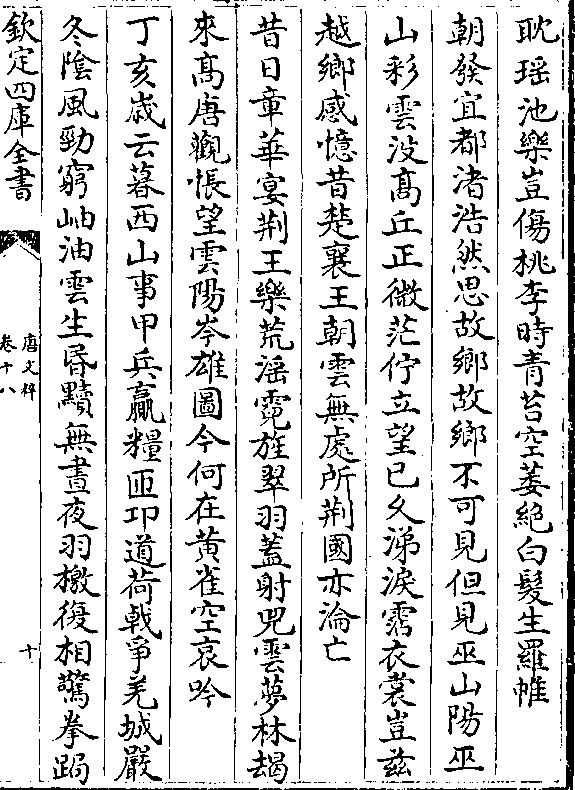 耽瑶池樂豈傷桃李時青苔空萎絶白髮生羅帷
朝發宜都渚浩然思故鄉故鄉不可見但見巫山陽巫
山彩雲没髙丘正微茫佇立望已久涕淚霑衣裳豈兹
越鄉感憶昔楚襄王朝雲無處所荆國亦淪亡
昔日章華宴荆王樂荒淫霓旌翠羽蓋射兕雲夢林朅
來髙唐觀悵望雲陽岑雄圖今何在黄雀空哀吟
丁亥嵗云暮西山事甲兵贏糧匝邛道荷戟爭羌城嚴
冬隂風勁窮岫油雲生昬黷無晝夜羽檄復相驚拳跼
欽定四庫全書
唐文粹
卷十八
十